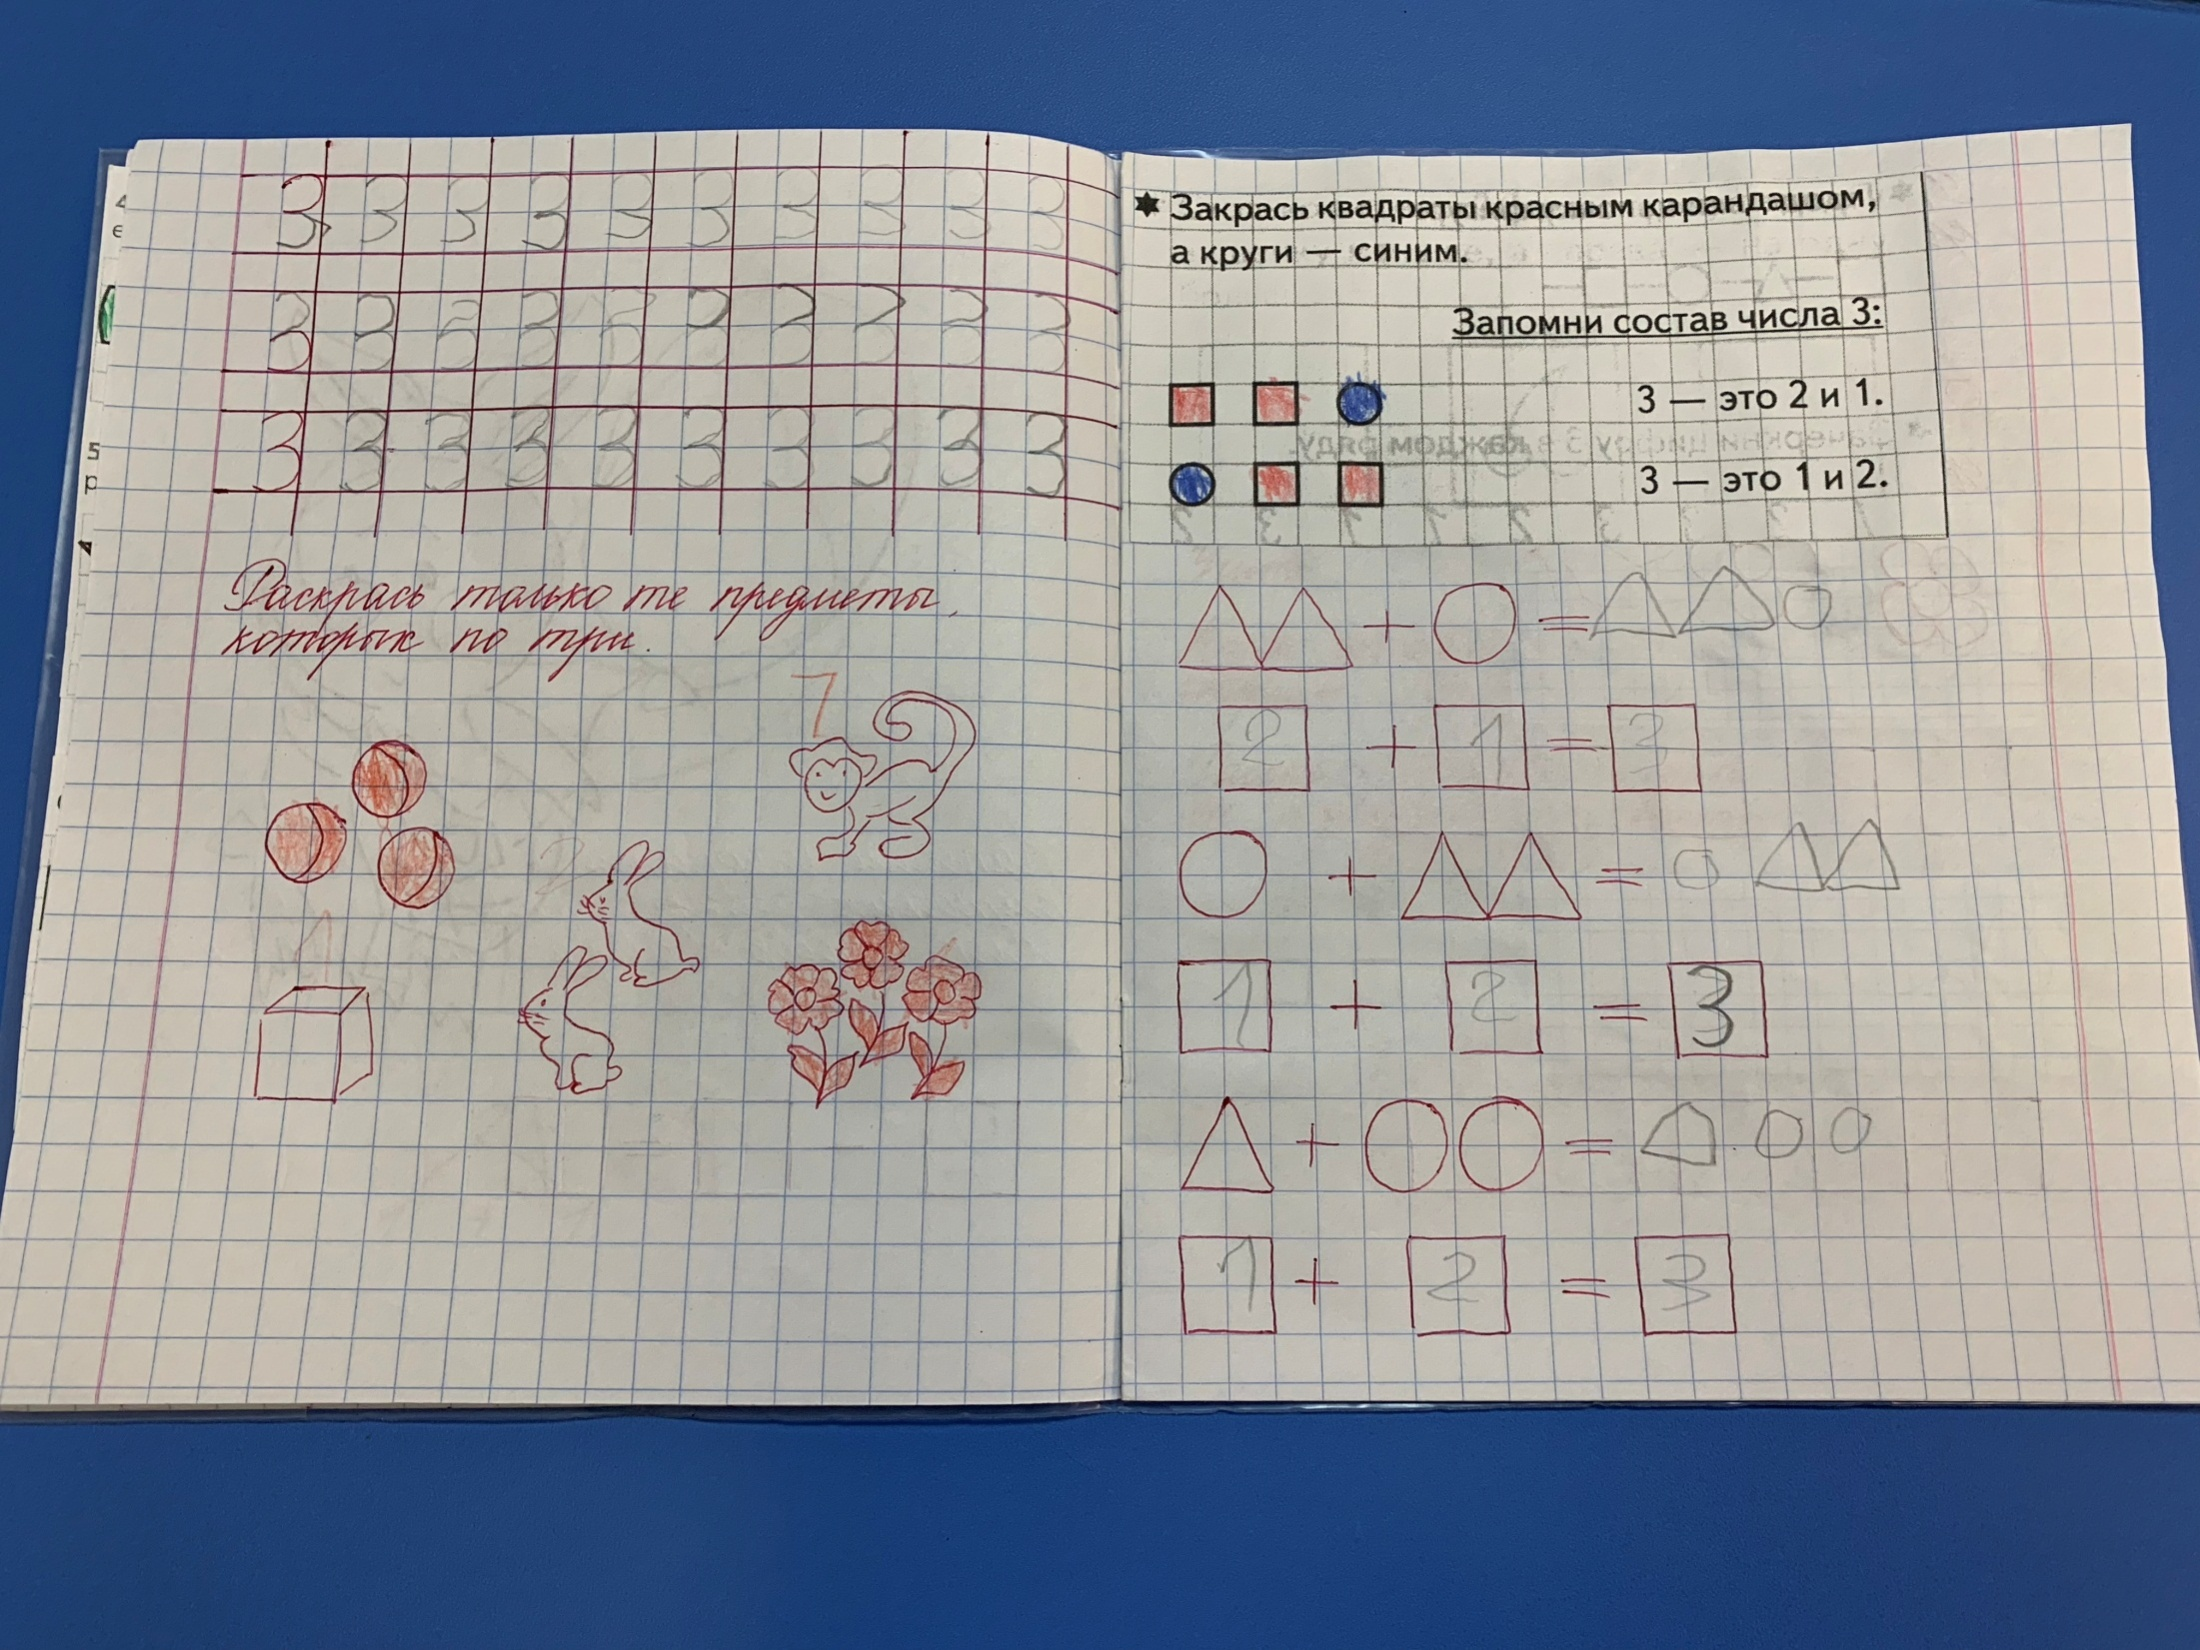 3 3 3 3 3 3 3 3 3 3
3 3 3 3 3 3 3 3 3 3
3 3 3 3 3 3 3 3 3 3
Раскрась только те предметы,
которых по три.
1
2
1
✶ Закрась квадраты красным карандашом,
а круги — синим.
Запомни состав числа 3:
3 — это 2 и 1.
3 — это 1 и 2.
+ =
2 + 1 = 3
+ =
1 + 2 = 3
+ =
1 + 2 = 3